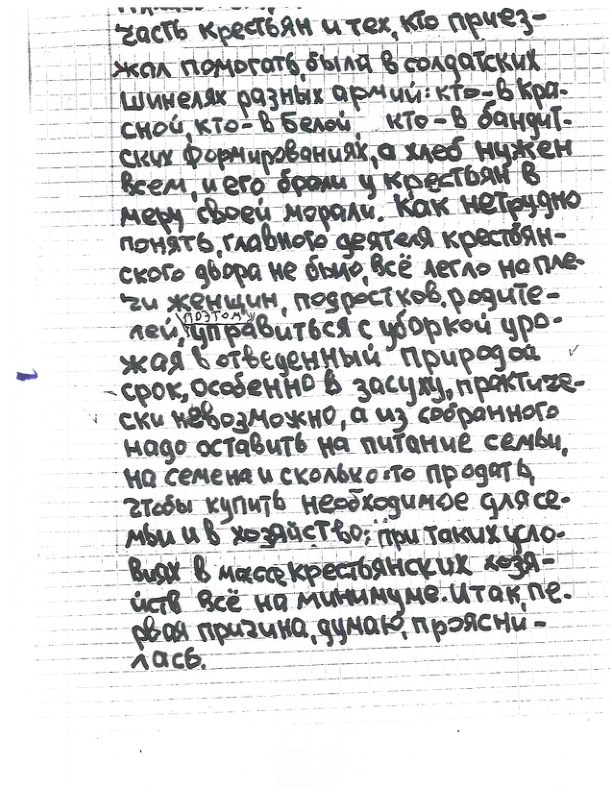 часть крестьян и тех, кто приез-
жал помогать, была в солдатских
шинелях разных армий: кто-в Кра-
сной, кто-в Белой, кто-в бандит-
ских формированиях, а хлеб нужен
всем, и его брали у крестьян в
меру своей морали. Как нетрудно
понять, главного деятеля крестьян-
ского двора не было, всё легло на пле-
чи женщин, подростков, родите-
поэтому
лей, управиться с уборкой уро-
жая в отведенный природой
срок, особенно в засуху, практиче-
ски невозможно, а из собранного
надо оставить на питание семьи,
на семена и сколько-то продать,
чтобы купить необходимое для се-
мьи и в хозяйство; при таких усло-
виях в массе крестьянских хозя-
йств всё на минимуме. Итак, пе-
рвая причина, думаю, проясни-
лась.